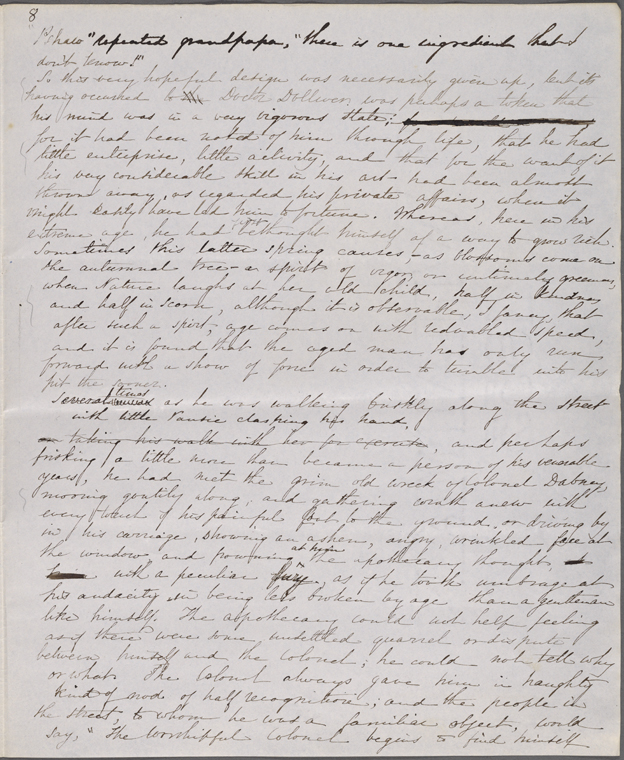 8
"Pshaw" repeated grandpapa, "there is one ingredient that I
don't know!"
So this very hopeful design was necessarily given up, but its
having occurred to Doctr Dolliver, was perhaps a token that
his mind was in a very vigorous state;
for it had been noted of him through life, that he had
little enterprise, little activity, and that for the want of it
his very considerable skill in his art had been almost
thrown away, as regarded his private affairs, when it
might easily have led him to fortune. Whereas, here in his
extreme age, he had bethought himself of a way to grow rich.
Sometimes this latter spring causes - as blossoms come on
the autumnal tree - a spirt of vigor, or untimely greenness,
when Nature laughs at her old child, half in kindness
and half in scorn, although it is observable, I fancy, that
after such a spirt, age comes on with redoubled speed,
and it is found that the aged man has only run
forward with a show of force in order to tumble into his
pit the sooner.
Several times as he was walking briskly along the street
with little Pansie clasping his hand,
taking his walk with her for exercise, and perhaps
frisking a little more than became a person of his venerable
years, he had met the grim old wreck of Colonel Dabney,
moving goutily along, and gathering wrath anew with
every touch of his painful foot to the ground, or driving by
in his carriage, showing an ashen, angry, wrinkled face at
the window, and frowning at him the apothecary thought,
with a peculiar fury, as if he took umbrage at
his audacity in being less broken by age than a gentleman
like himself. The apothecary could not help feeling
as if there were some unsettled quarrel or dispute
between himself and the Colonel; he could not tell why
or what. The Colonel always gave him a haughty
kind of nod of half recognition; and the people in
the street, to whom he was a familiar object, would
say, "The worshipful Colonel begins to find himself